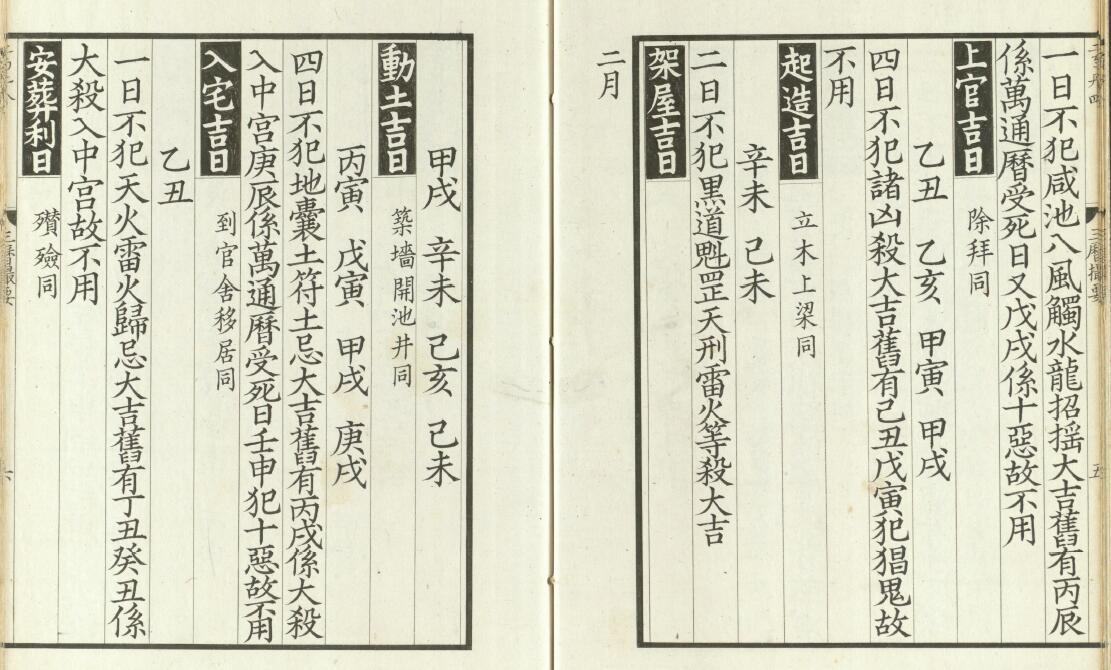 一日不犯咸池八風觸水龍招揺大吉舊有丙辰
係萬通曆受死日又戊戌係十惡故不用
上官吉日 除拜同
乙丑 乙亥 甲寅 甲戌
四日不犯諸凶殺大吉舊有己丑戊寅犯猖鬼故
不用
起造吉日 立木上梁同
辛未 己未
二日不犯黑道魁罡天刑雷火等殺大吉
架屋吉日
二月
甲戌 辛未 己亥 己未
動土吉日 築墻開池井同
丙寅 戊寅 甲戌 庚戌
四日不犯地囊土符土忌大吉舊有丙戌係大殺
入中宫庚辰係萬通曆受死日壬申犯十惡故不用
入宅吉日 到官舍移居同
乙丑
一日不犯天火雷火歸忌大吉舊有丁丑癸丑係
大殺入中宫故不用
安葬利日 殯殮同
三曆撮要
五
六